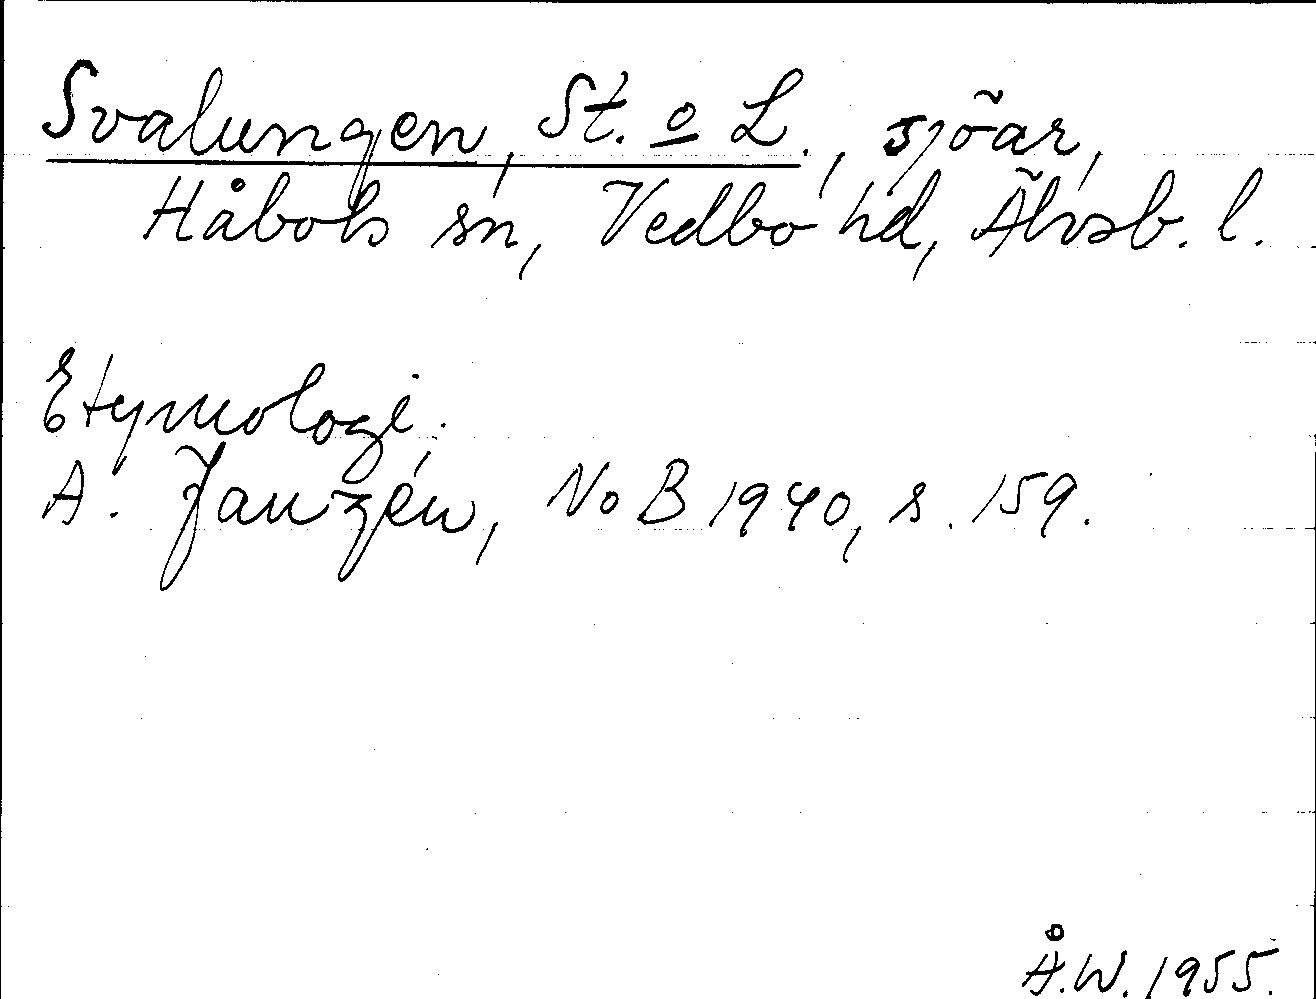 Svalungen, St. o L., sjöar,
Håbols sn, Vedbo hd, Älvsb. l.
Etymologi:
A. Janzén, NoB 1940, s. 159.
Å.W. 1955.